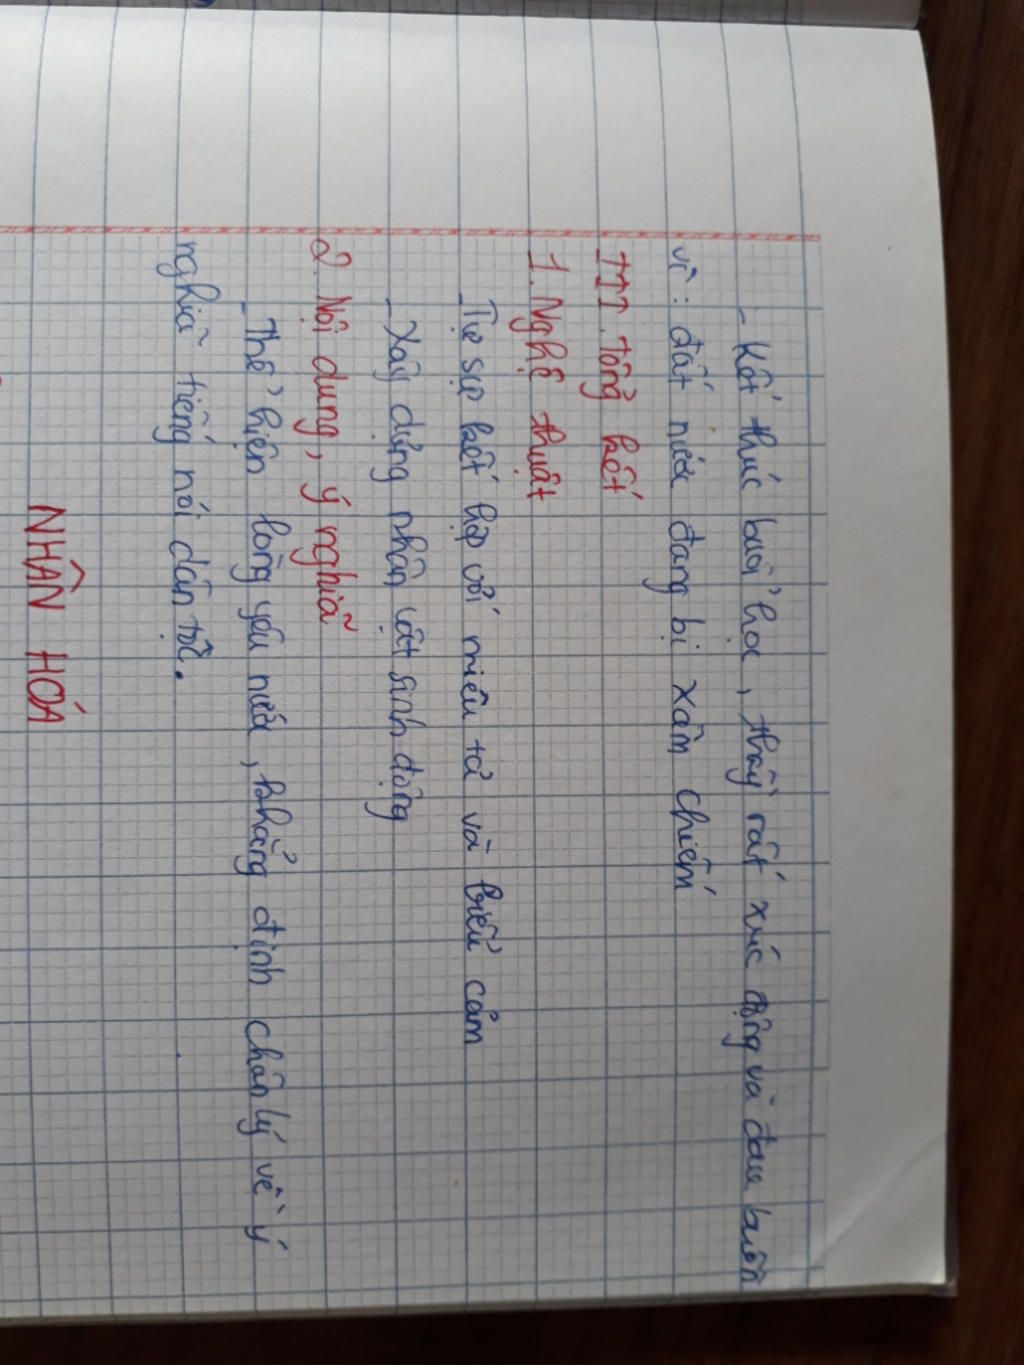 - Kết thúc buổi học, thầy rất xúc động và đau buồn
vì : đất nước đang bị xâm chiếm
III. tổng kết
1. Nghệ thuật
- Tự sự kết hợp với miêu tả và biểu cảm
- Xây dựng nhân vật sinh động
2. Nội dung, ý nghĩã
- Thể hiện lòng yêu nước, khẳng định chân lý về ý
nghĩã tiếng nói dân tộc.
NHÂN HOÁ